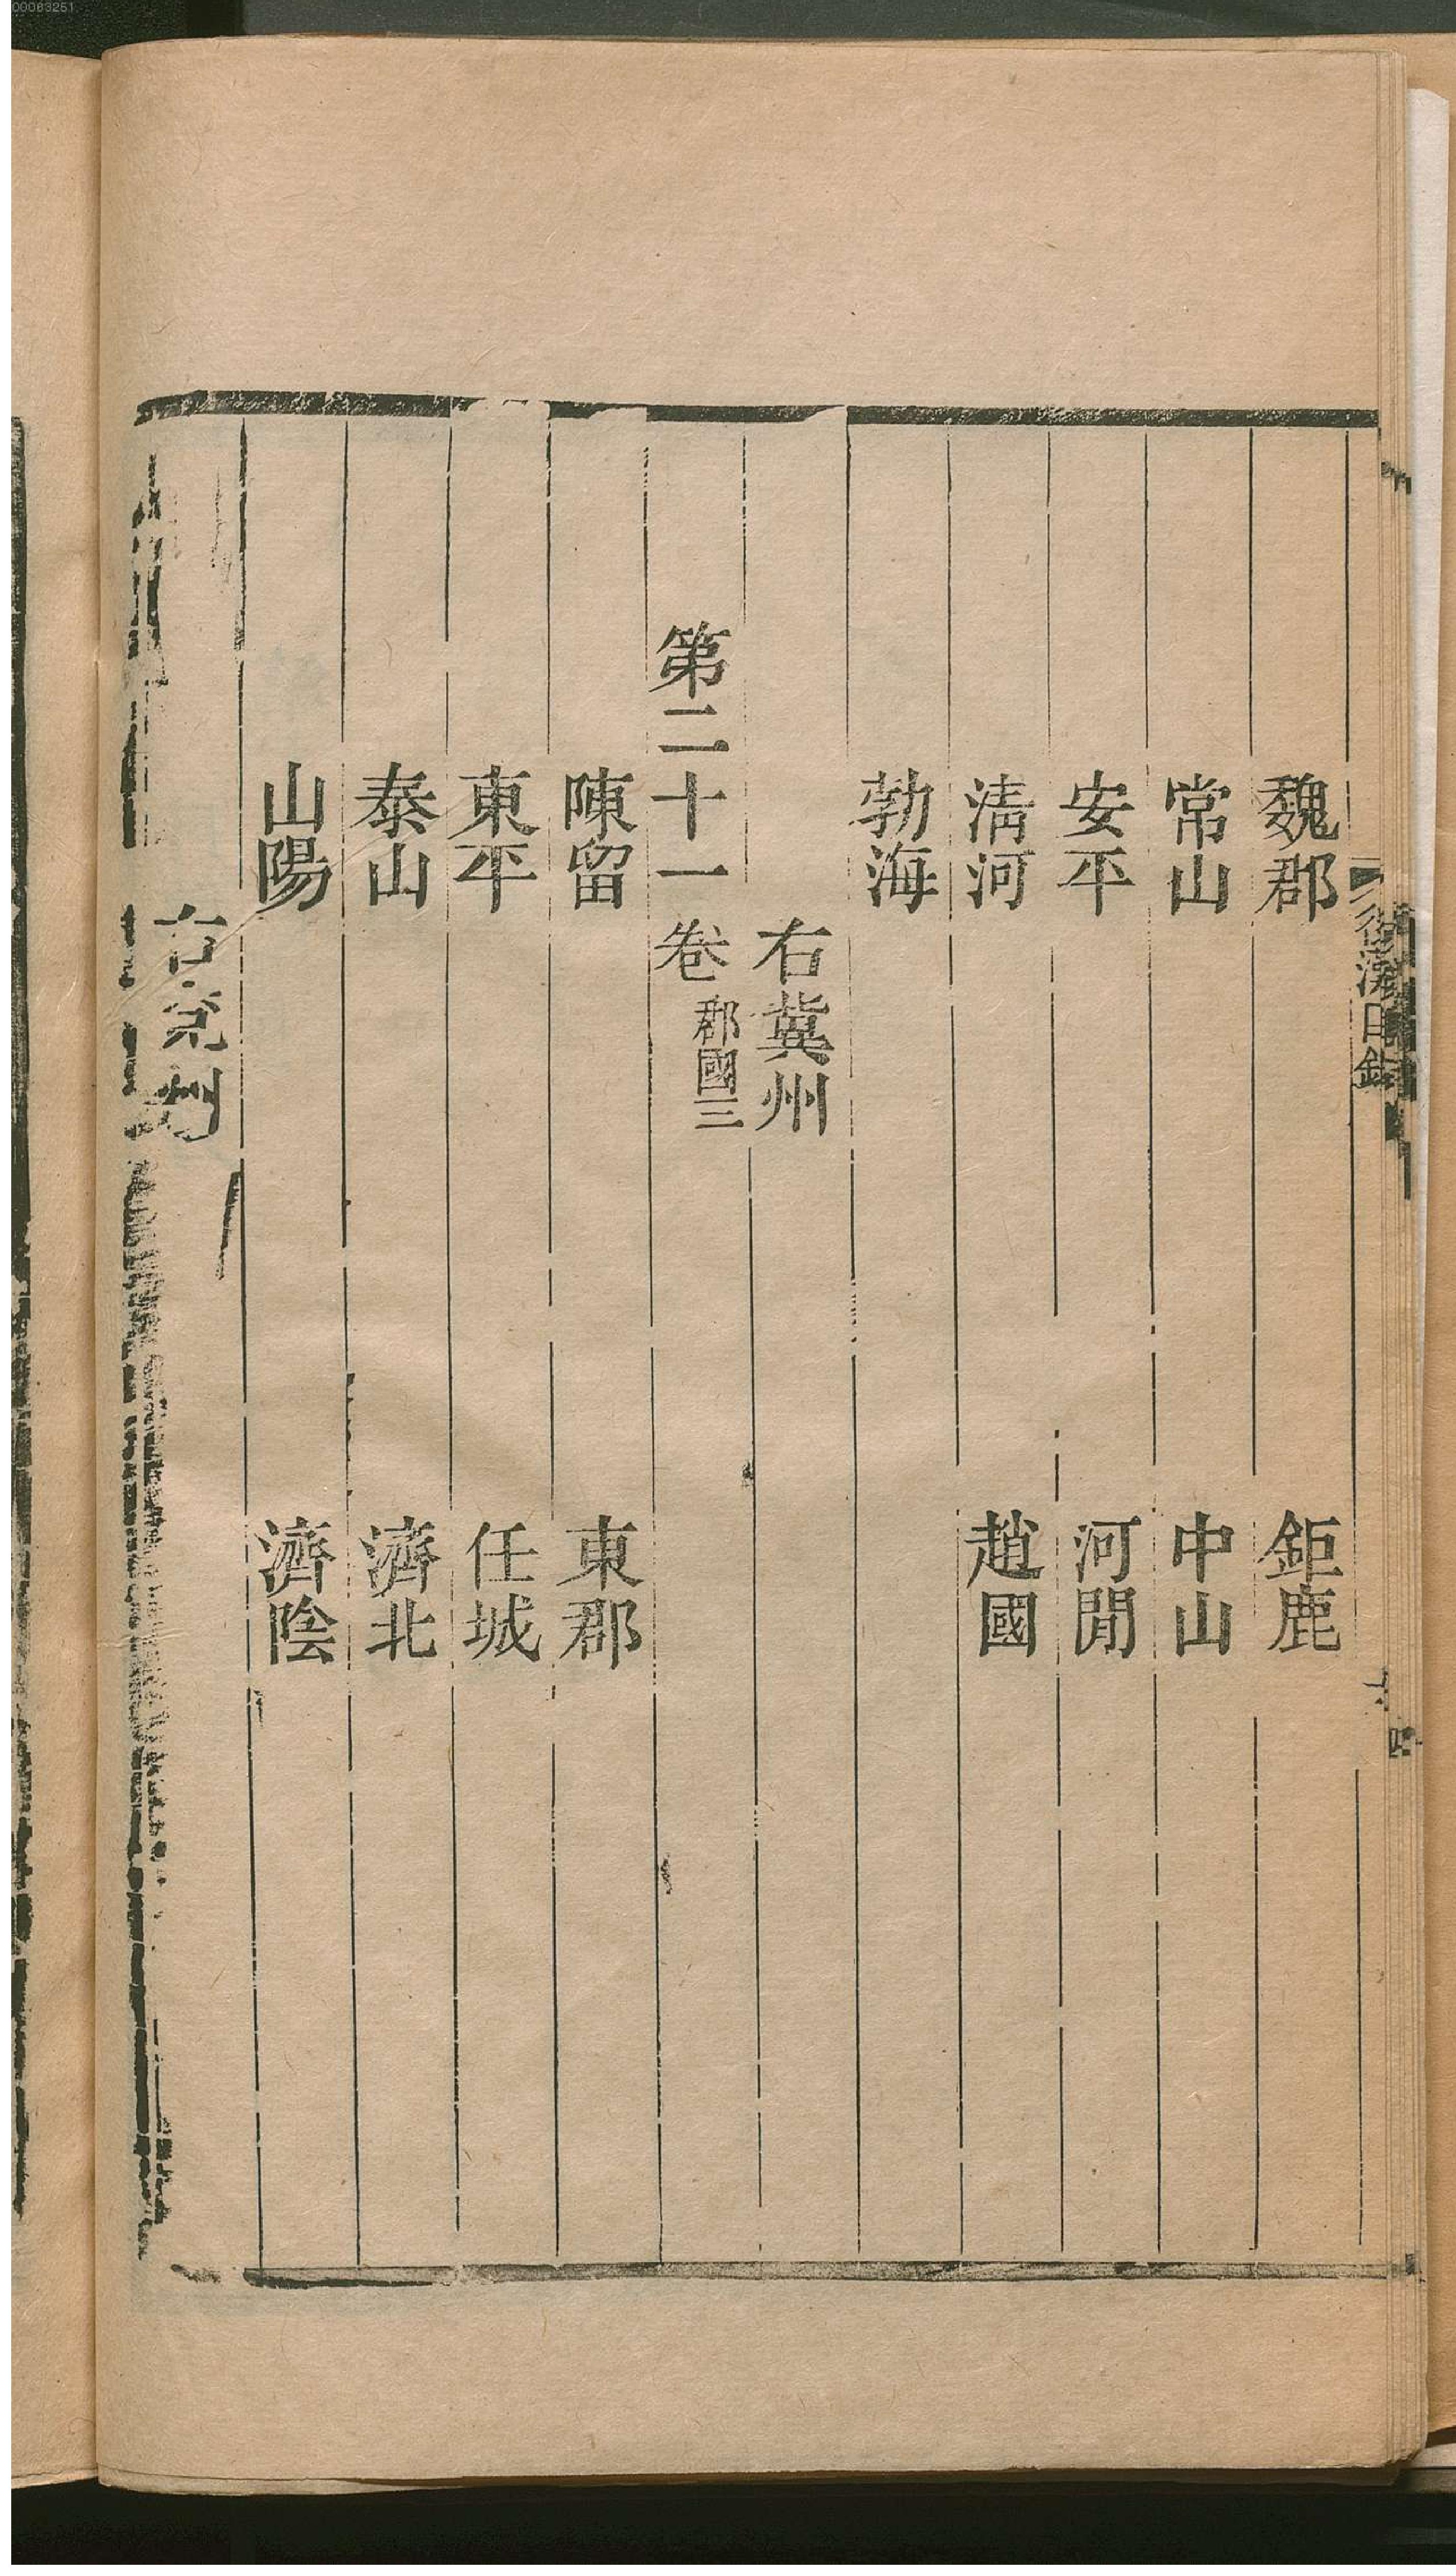 00083251
魏郡 鉅鹿
常山 中山
安平 河閒
清河 趙國
勃海
右冀州
第二十一卷 郡國三
陳留 東郡
東平 任城
泰山 濟北
山陽 濟陰
右兗州
後漢目錄